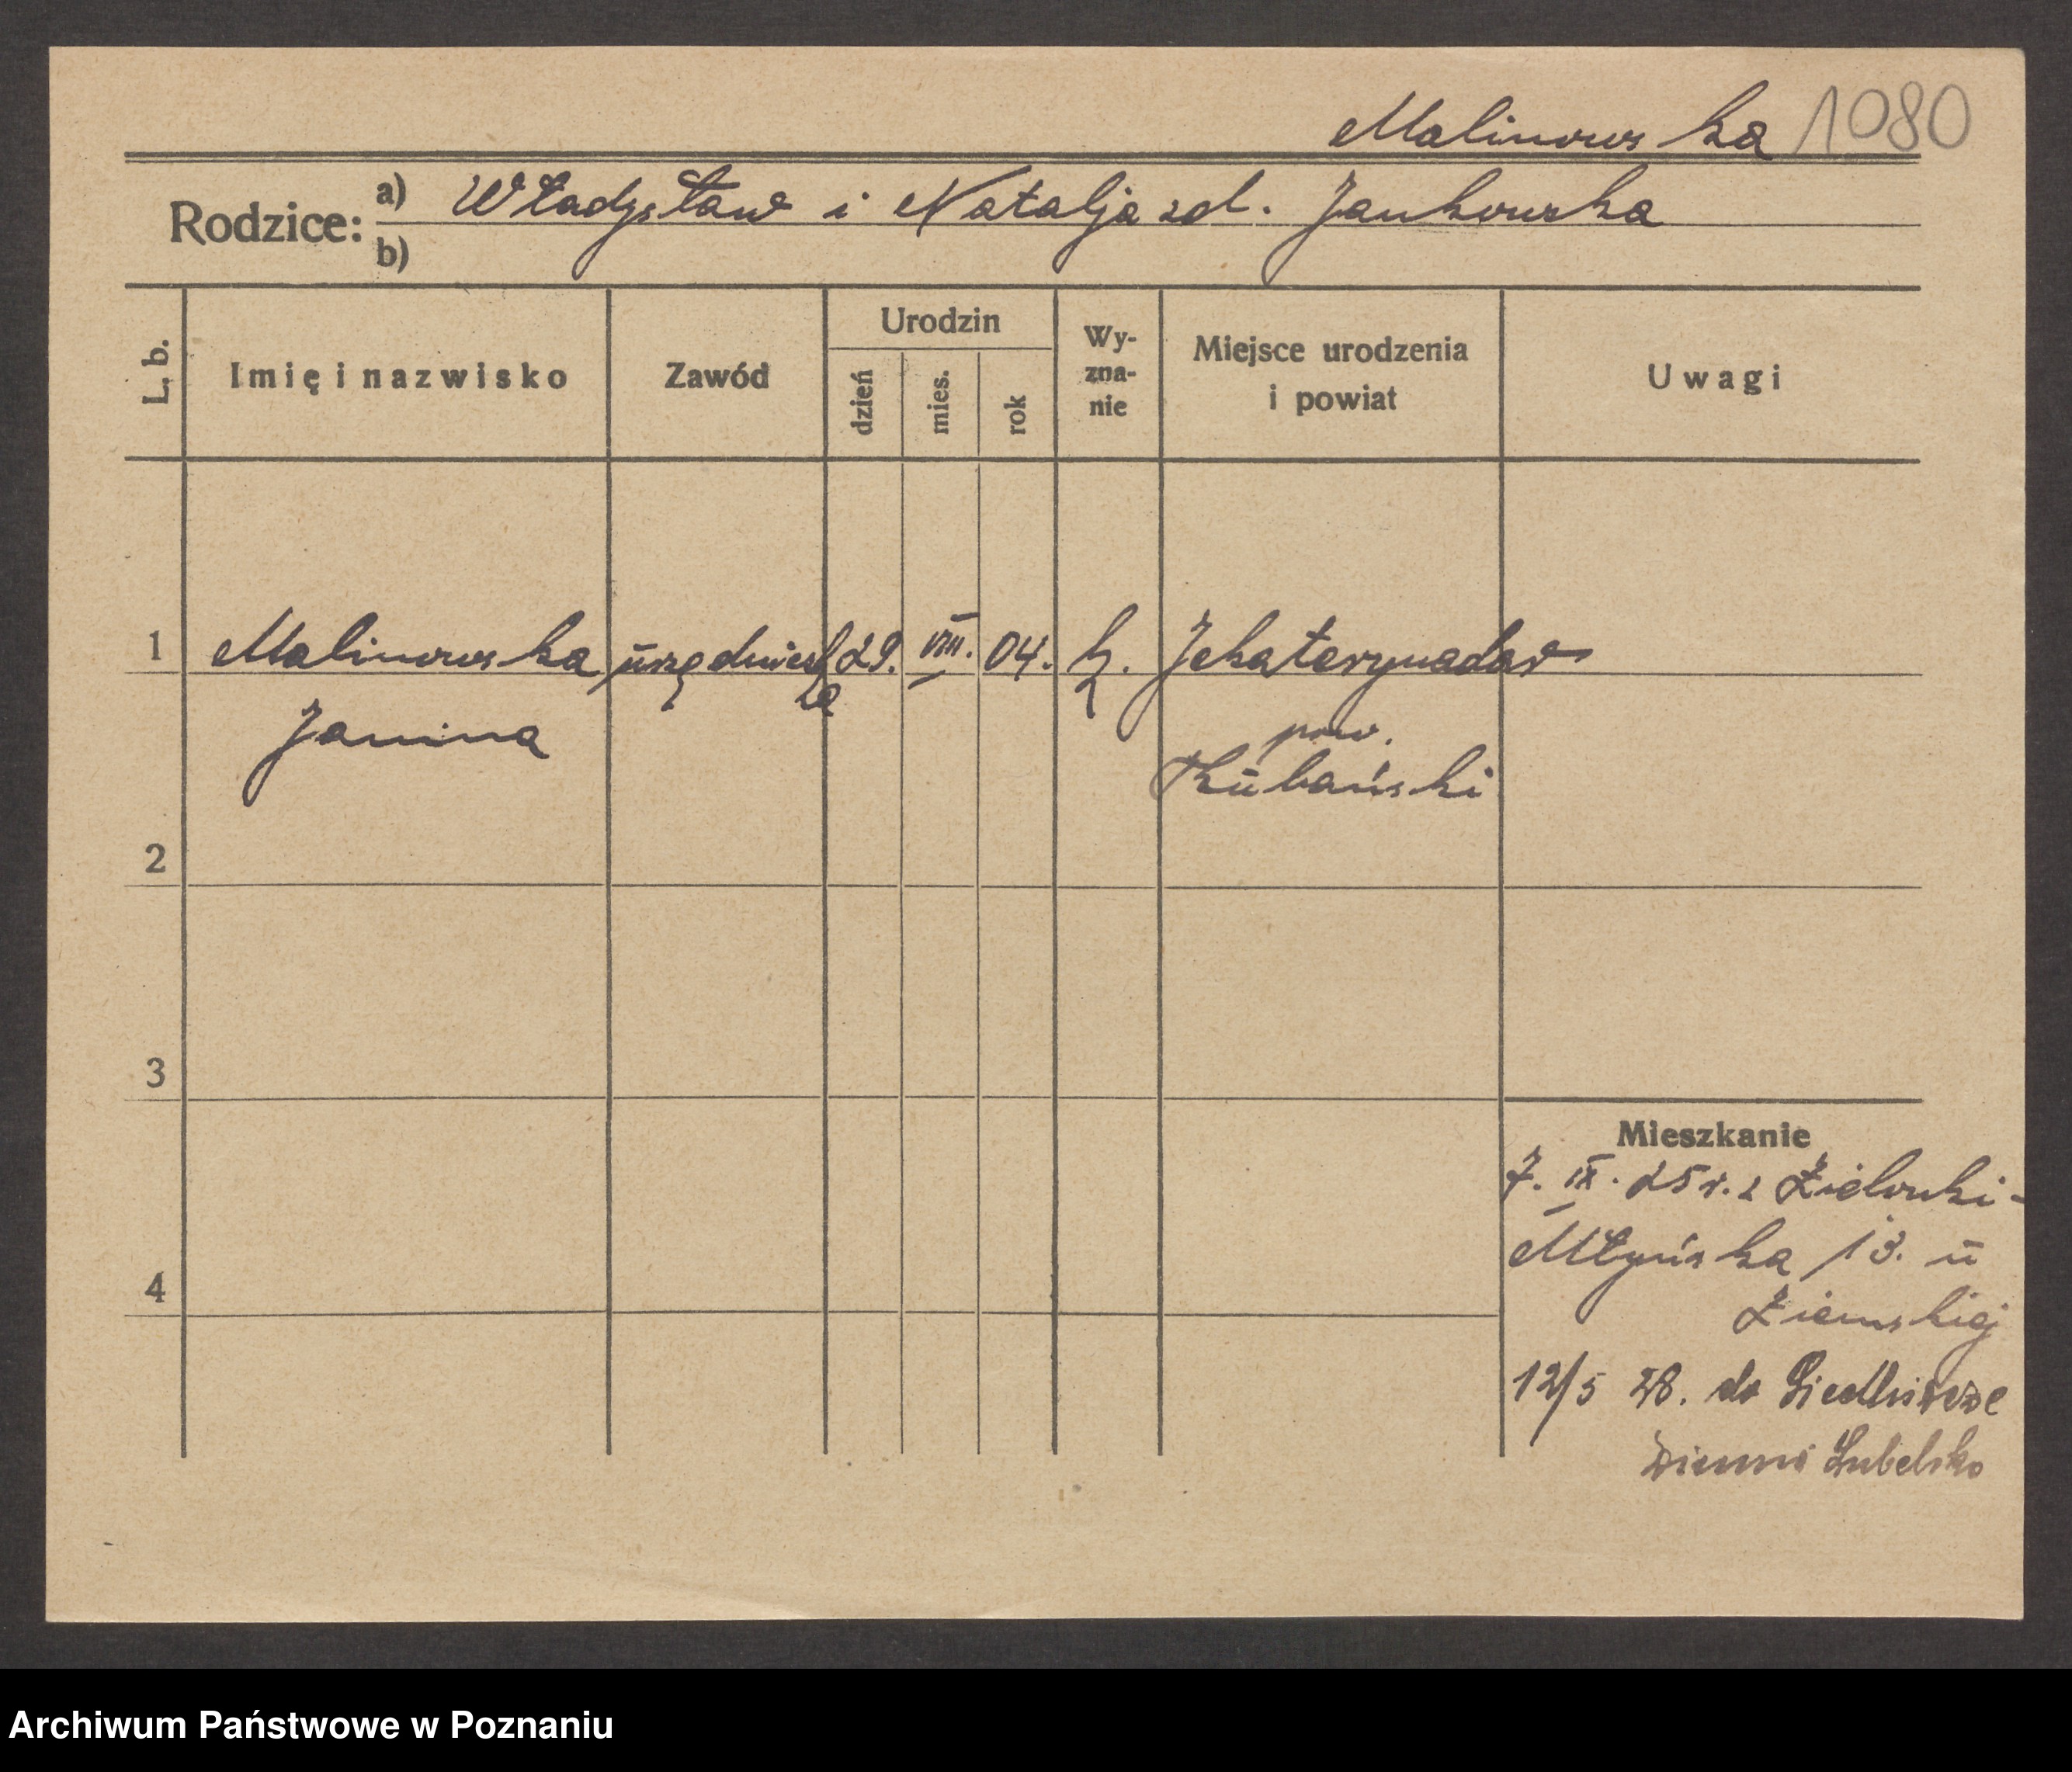 Malinowska 1080
Rodzice: a) Władysław i Natalja zd. Jankowska
b)
L. b.
Imię i nazwisko
Zawód
Urodzin
dzień
mies.
rok
Wy-
zna-
nie
Miejsce urodzenia
i powiat
Uwagi
1 Malinowska urzędnicz 29. VIII. 04. k. Jekaterynodar
ka
Janina
pow.
Kubański
2
3
4
Mieszkanie
7. IX. 25 r. z Zielonki-
Młyńska 13. u
Ziemskiej
12/5 28. do Siedliszcze
Lubelsko
Archiwum Państwowe w Poznaniu